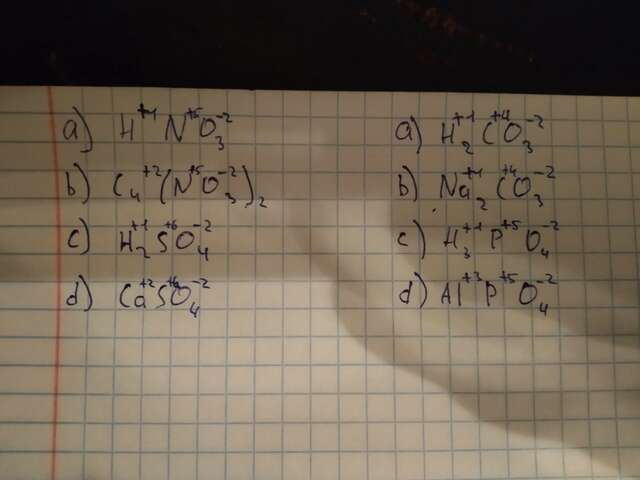 a) H⁺¹N⁺⁵O₃⁻²
b) Cu⁺²(N⁺⁵O₃⁻²)₂
c) H₂⁺¹S⁺⁶O₄⁻²
d) Ca⁺²S⁺⁶O₄⁻²
a) H₂⁺¹C⁺⁴O₃⁻²
b) Na₂⁺¹C⁺⁴O₃⁻²
c) H₃⁺¹P⁺⁵O₄⁻²
d) Al⁺³P⁺⁵O₄⁻²